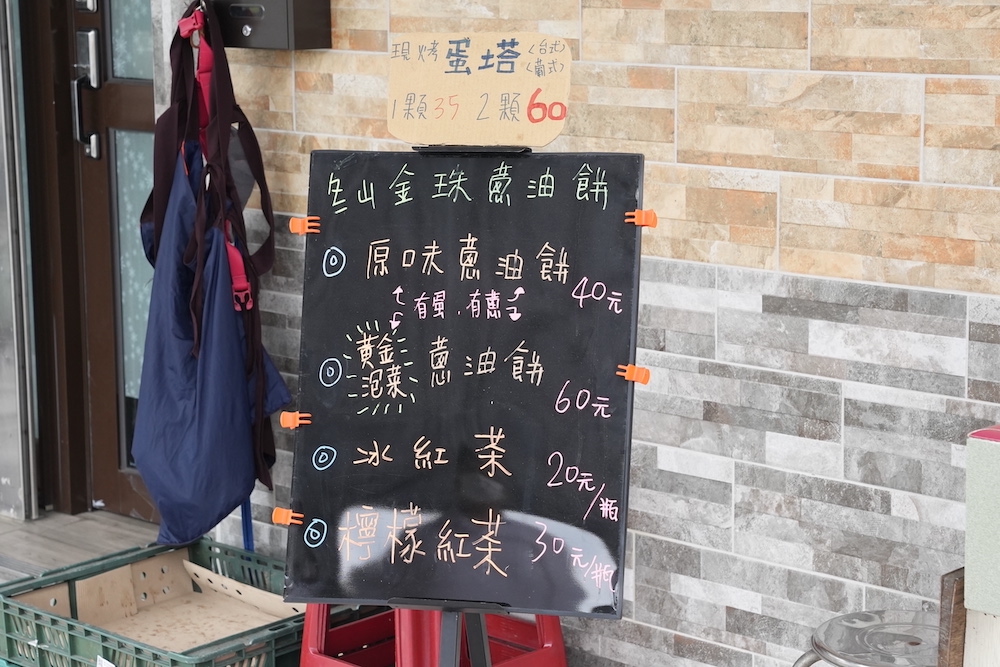 現烤蛋塔(台式)(葡式)
1顆35 2顆60
冬山金珠蔥油餅
◎原味蔥油餅 40元
有蛋.有蔥
◎黃金泡菜蔥油餅 60元
◎冰紅茶 20元/瓶
◎檸檬紅茶 30元/瓶